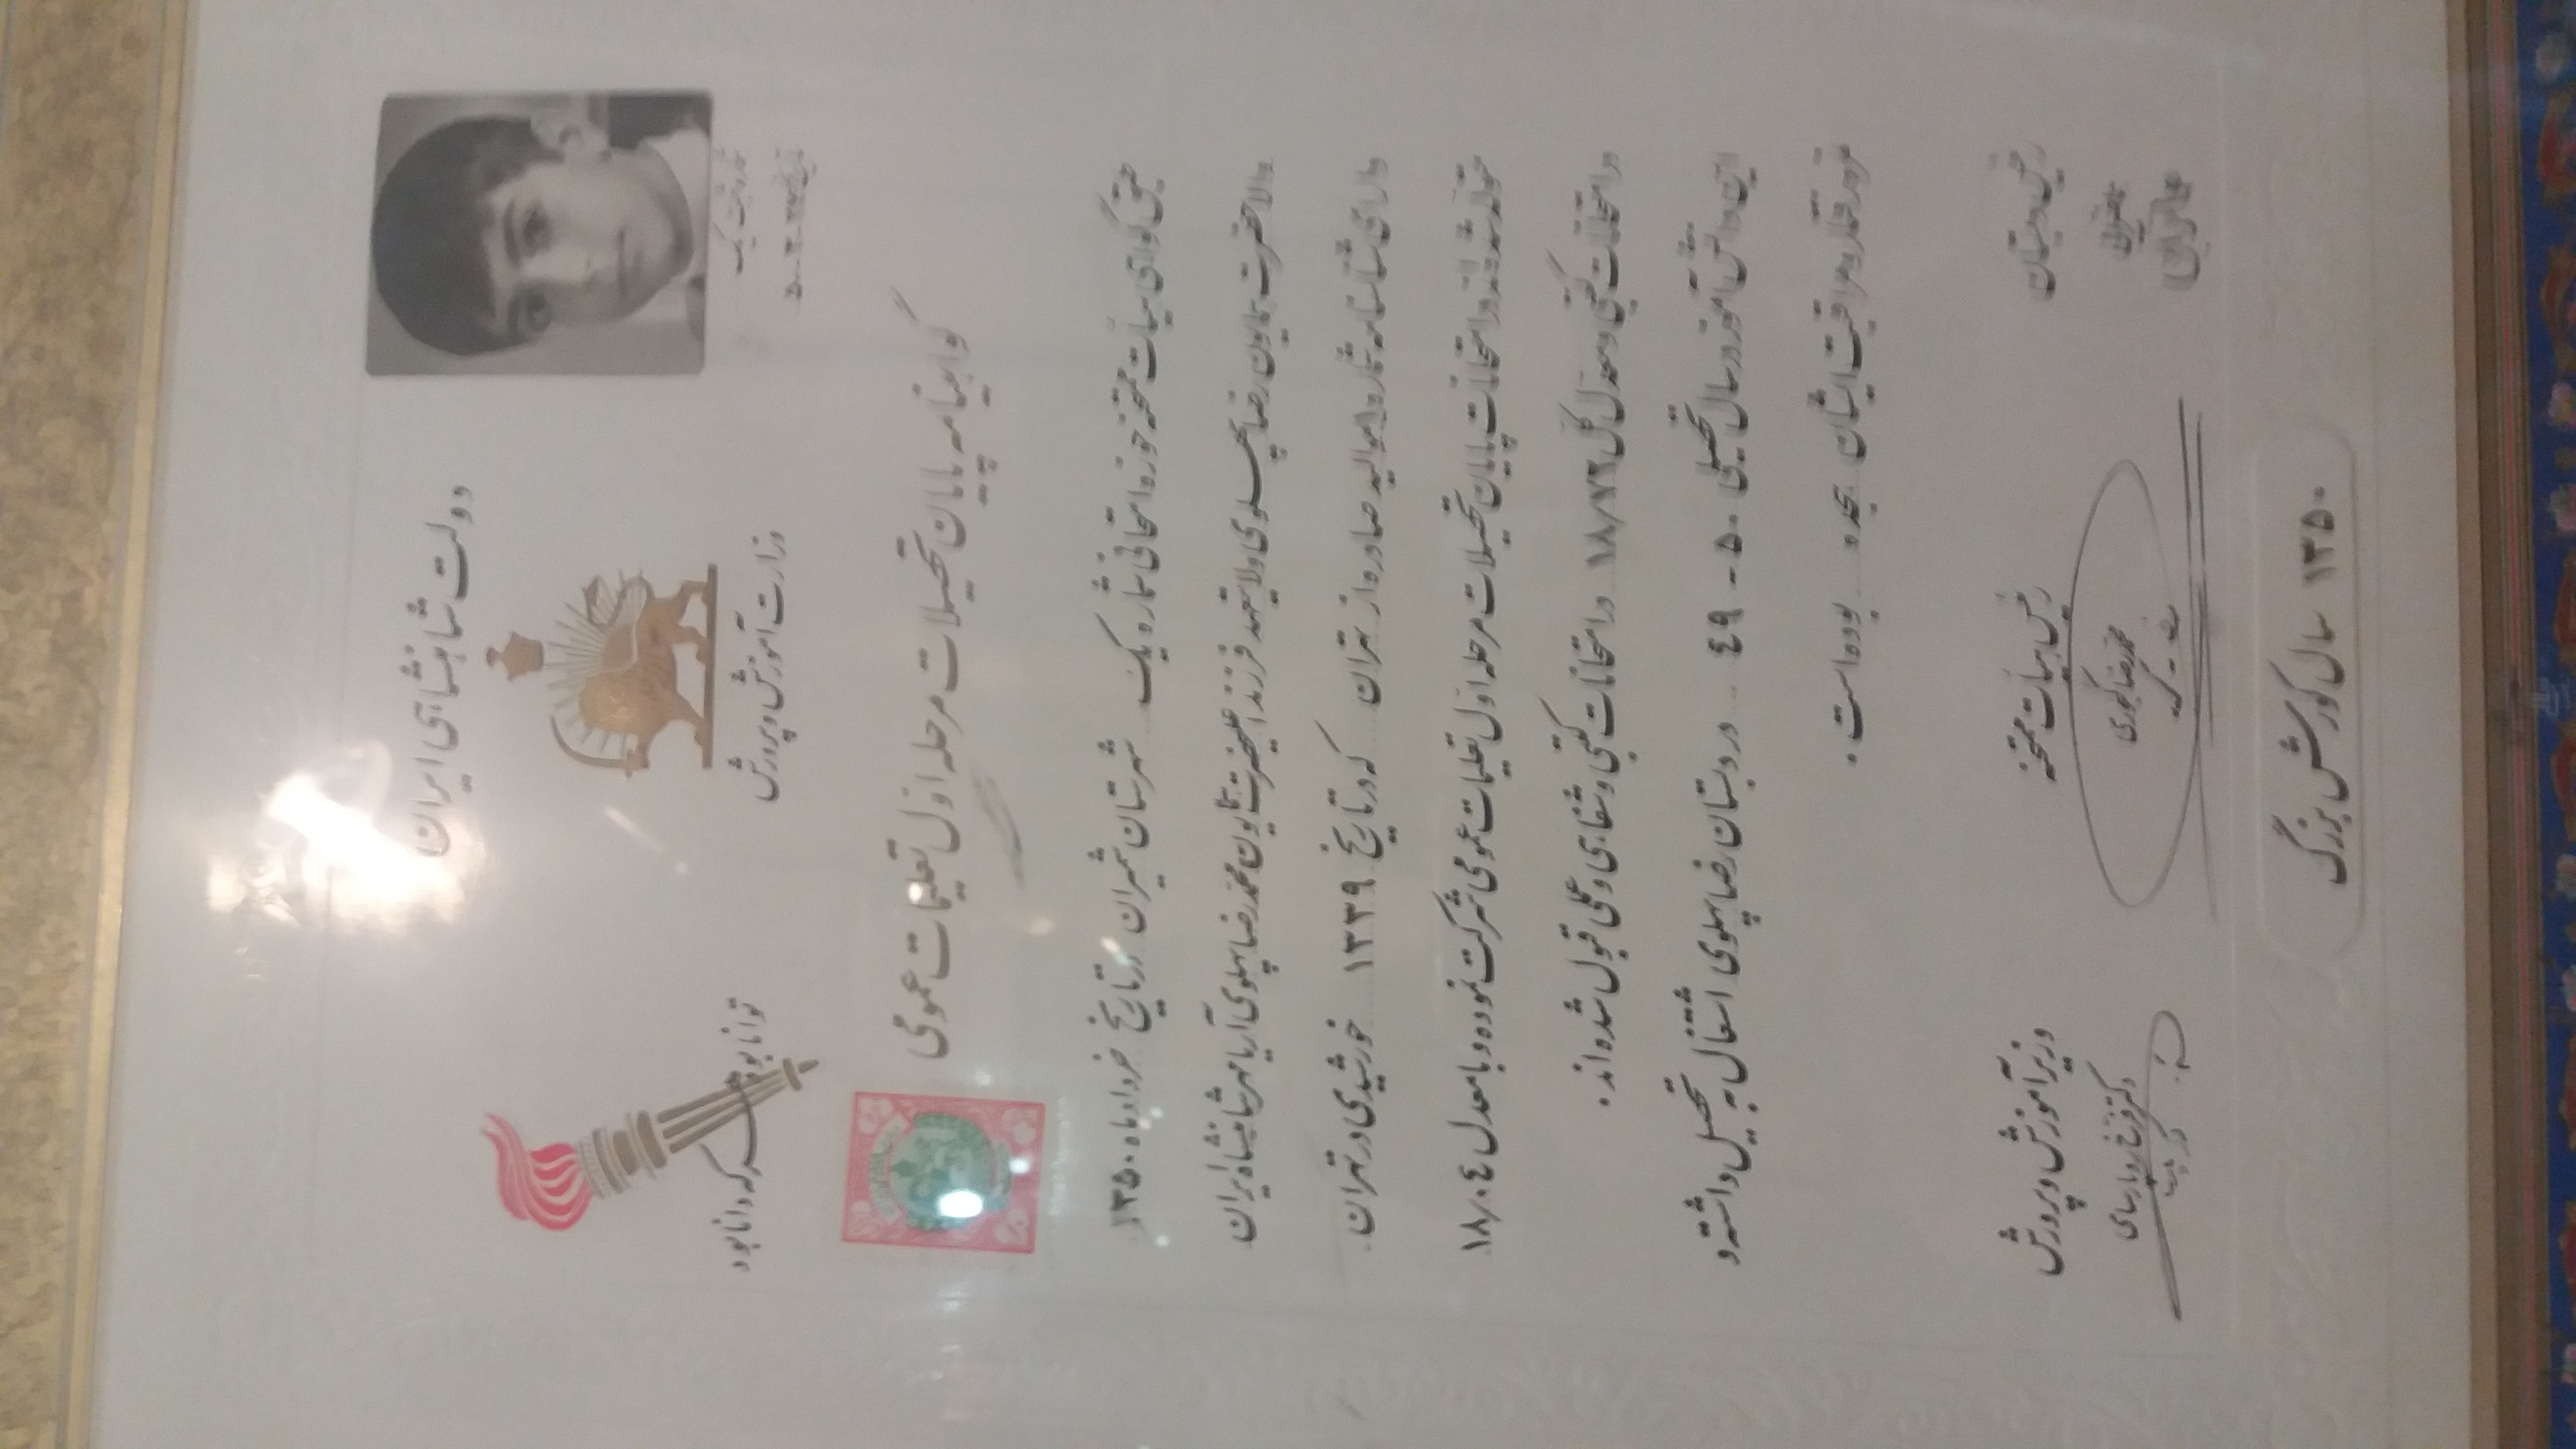 دولت شاهنشاهی ایران
وزارت آموزش و پرورش
توانا بود هر که دانا بود
شماره ثبت یک
تاریخ ۵۰-۳-۲۷
گواهینامه پایان تحصیلات مرحله اول تعلیمات عمومی
طبق گواهی هیأت ممتحنه حوزه امتحانی شماره یک شهرستان شمیران در تاریخ خرداد ماه ۱۳۵۰
والاحضرت همایون رضا پهلوی ولایتعهد فرزند اعلیحضرت همایون محمد رضا پهلوی آریامهر شاهنشاه ایران
دارای شناسنامه شماره صادره از تهران که در تاریخ ۱۳۳۹ خورشیدی در تهران
متولد شده‌اند در امتحانات پایان تحصیلات مرحله اول تعلیمات عمومی شرکت نموده و با معدل ۱۸/۰۴
در امتحانات کتبی و معدل کل ۱۸/۷۲ در امتحانات کتبی و شفاهی و عملی قبول شده‌اند.
این دانش آموز در سال تحصیلی ۵۰ - ۴۹ در دبستان رضا پهلوی اشتغال به تحصیل داشته و
طرز رفتار و مراقبت ایشان بوده است.
رئیس دبستان
رئیس هیأت ممتحنه
وزیر آموزش و پرورش
محمدرضا کجوری
دکتر فرخ رو پارسای
۱۳۵۰ سال کورش بزرگ